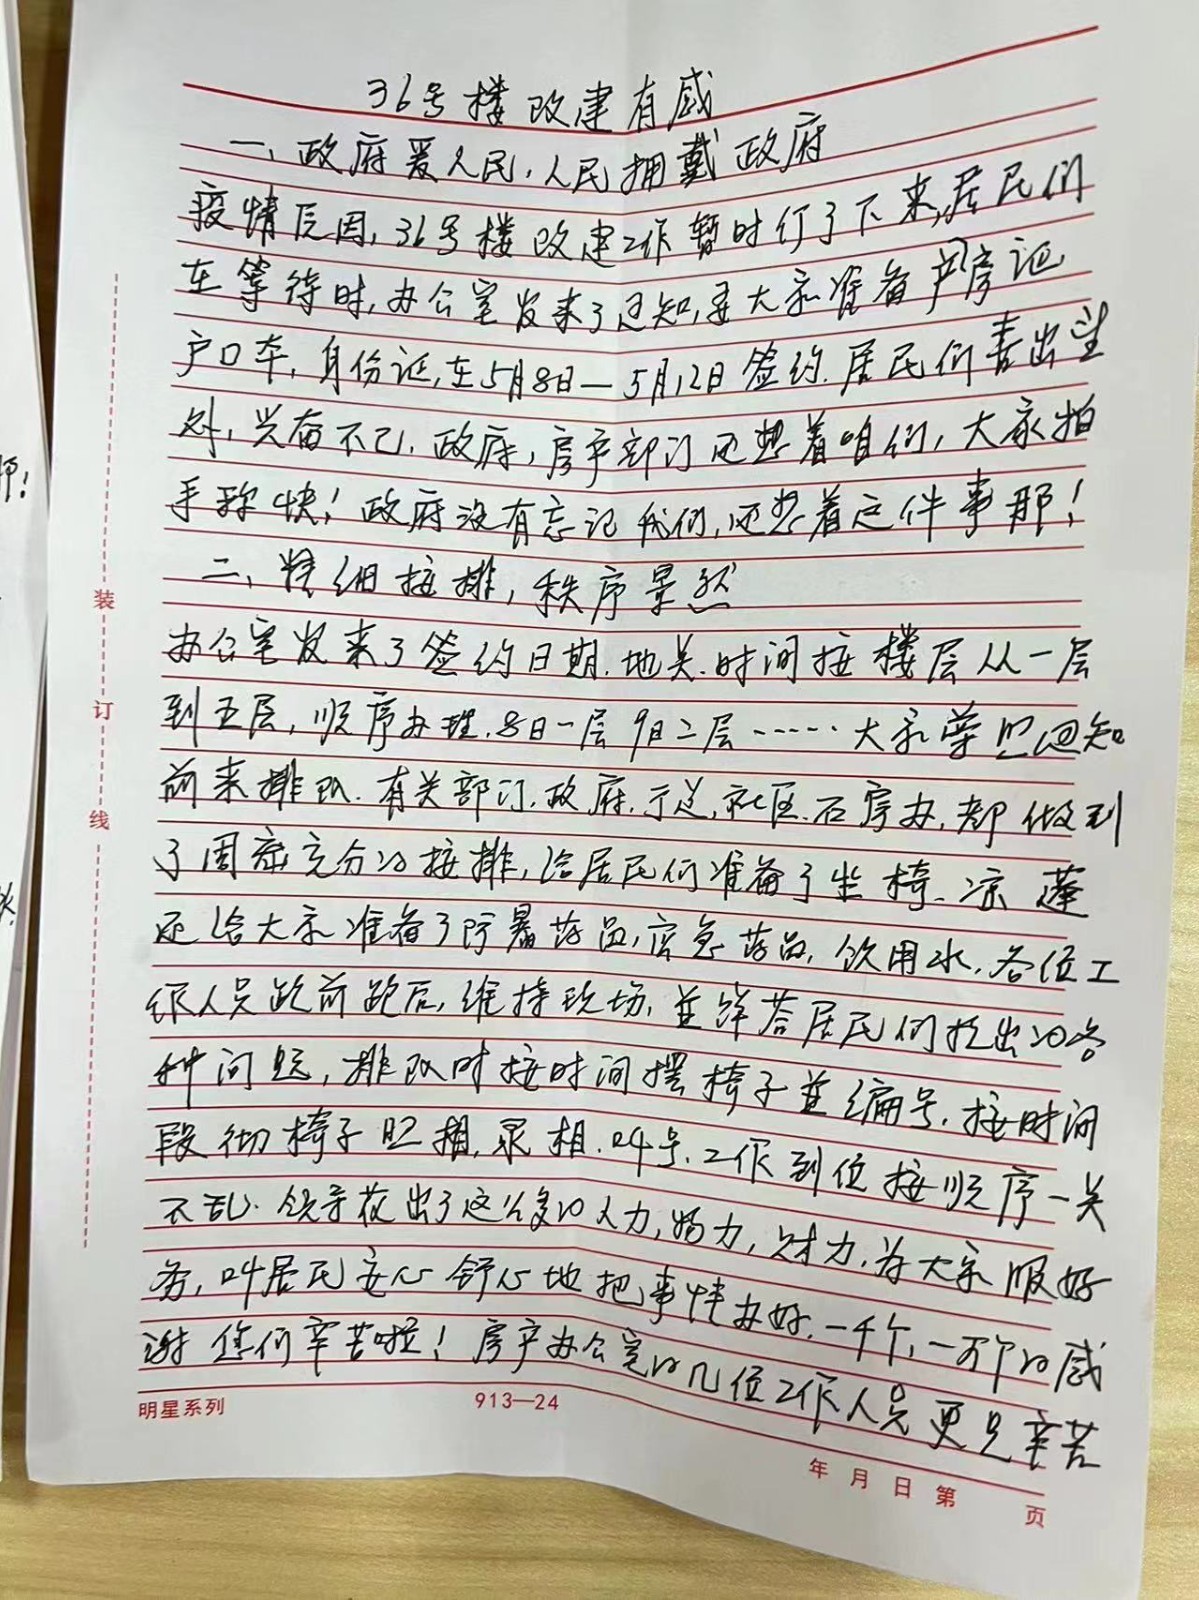 36号楼改建有感
一、政府爱人民,人民拥戴政府
疫情原因,36号楼改建工作暂时停了下来,居民们
在等待时,办公室发来了通知,要大家准备产房证
户口本,身份证,在5月8日—5月12日签约.居民们喜出望
外,兴奋不已.政府,房产部门还想着咱们,大家拍
手称快!政府没有忘记我们,还想着这件事那!
二、精细按排,秩序景然
办公室发来了签约日期.地点.时间按楼层从一层
到五层,顺序办理.8日一层9日二层……大家尊照通知
前来排队.有关部门.政府.社区.石房办,都做到
了周密充分的按排,给居民们准备了坐椅、凉蓬
还给大家准备了防暑药品,应急药品,饮用水.各位工
作人员跑前跑后,维持现场,并解答居民们提出的各
种问题,排队时按时间摆椅子并编号.按时间
段彻椅子照相,录相.叫号.工作到位按顺序一点
不乱.领导花出了这么多的人力,物力,财力,为大家服好
务,叫居民安心舒心地把事情办好.一千个,一万个的感
谢您们辛苦啦!房产办公室的几位工作人员更是辛苦
装
订
线
明星系列 913—24
年 月 日 第 页